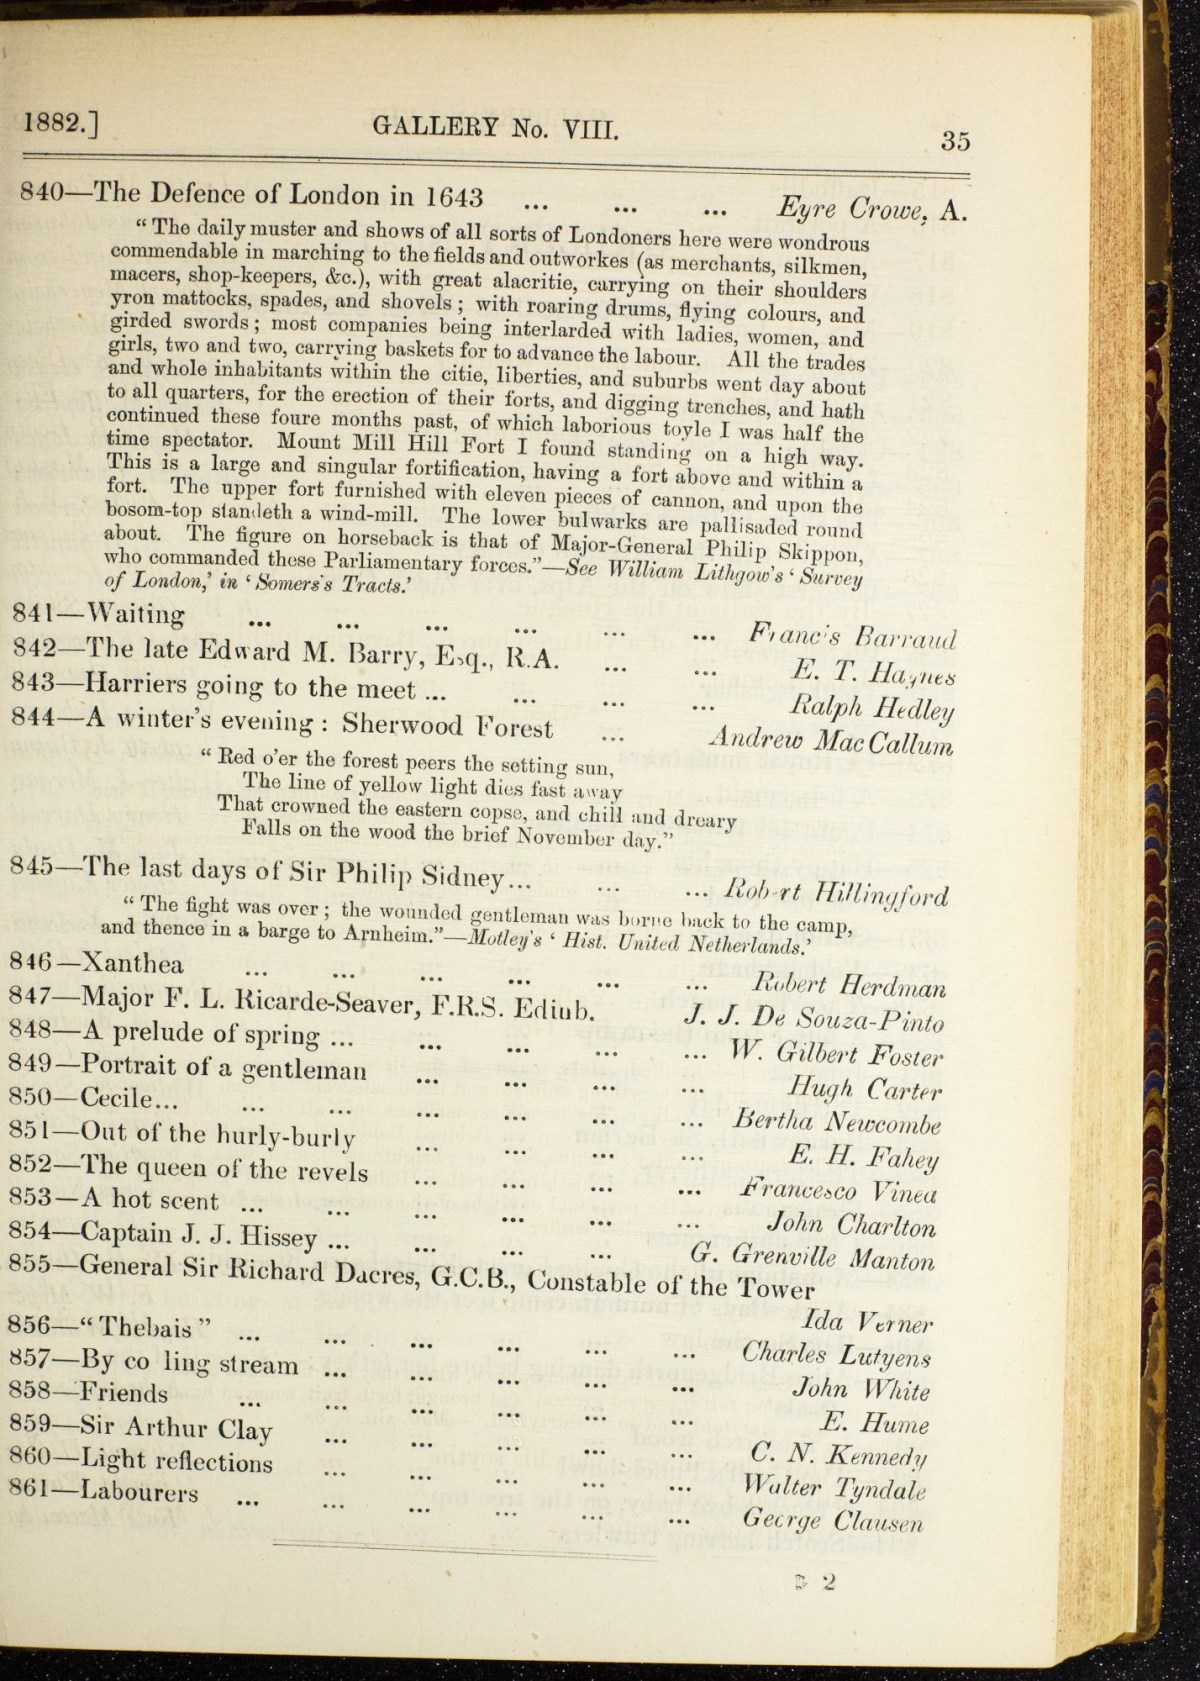 1882.] GALLERY No. VIII. 35
840—The Defence of London in 1643 ... ... ... Eyre Crowe, A.
“The daily muster and shows of all sorts of Londoners here were wondrous
commendable in marching to the fields and outworkes (as merchants, silkmen,
macers, shop-keepers, &c.), with great alacritie, carrying on their shoulders
yron mattocks, spades, and shovels; with roaring drums, flying colours, and
girded swords; most companies being interlarded with ladies, women, and
girls, two and two, carrying baskets for to advance the labour. All the trades
and whole inhabitants within the citie, liberties, and suburbs went day about
to all quarters, for the erection of their forts, and digging trenches, and hath
continued these foure months past, of which laborious toyle I was half the
time spectator. Mount Mill Hill Fort I found standing on a high way.
This is a large and singular fortification, having a fort above and within a
fort. The upper fort furnished with eleven pieces of cannon, and upon the
bosom-top standeth a wind-mill. The lower bulwarks are pallisaded round
about. The figure on horseback is that of Major-General Philip Skippon,
who commanded these Parliamentary forces.”—See William Lithgow's ‘Survey
of London,’ in ‘Somers's Tracts.’
841—Waiting ... ... ... ... ... ... Francis Barraud
842—The late Edward M. Barry, Esq., R.A. ... ... E. T. Haynes
843—Harriers going to the meet ... ... ... ... Ralph Hedley
844—A winter's evening: Sherwood Forest ... Andrew MacCallum
“Red o'er the forest peers the setting sun,
The line of yellow light dies fast away
That crowned the eastern copse, and chill and dreary
Falls on the wood the brief November day.”
845—The last days of Sir Philip Sidney... ... ... Robert Hillingford
“The fight was over; the wounded gentleman was borne back to the camp,
and thence in a barge to Arnheim.”—Motley's ‘Hist. United Netherlands.’
846—Xanthea ... ... ... ... ... ... Robert Herdman
847—Major F. L. Ricarde-Seaver, F.R.S. Edinb. J. J. De Souza-Pinto
848—A prelude of spring ... ... ... ... ... W. Gilbert Foster
849—Portrait of a gentleman ... ... ... ... Hugh Carter
850—Cecile... ... ... ... ... ... ... Bertha Newcombe
851—Out of the hurly-burly ... ... ... ... E. H. Fahey
852—The queen of the revels ... ... ... ... Francesco Vinea
853—A hot scent ... ... ... ... ... ... John Charlton
854—Captain J. J. Hissey ... ... ... ... G. Grenville Manton
855—General Sir Richard Dacres, G.C.B., Constable of the Tower
Ida Verner
856—“Thebais” ... ... ... ... ... ... Charles Lutyens
857—By co ling stream ... ... ... ... ... John White
858—Friends ... ... ... ... ... ... E. Hume
859—Sir Arthur Clay ... ... ... ... ... C. N. Kennedy
860—Light reflections ... ... ... ... ... Walter Tyndale
861—Labourers ... ... ... ... ... ... George Clausen
D 2